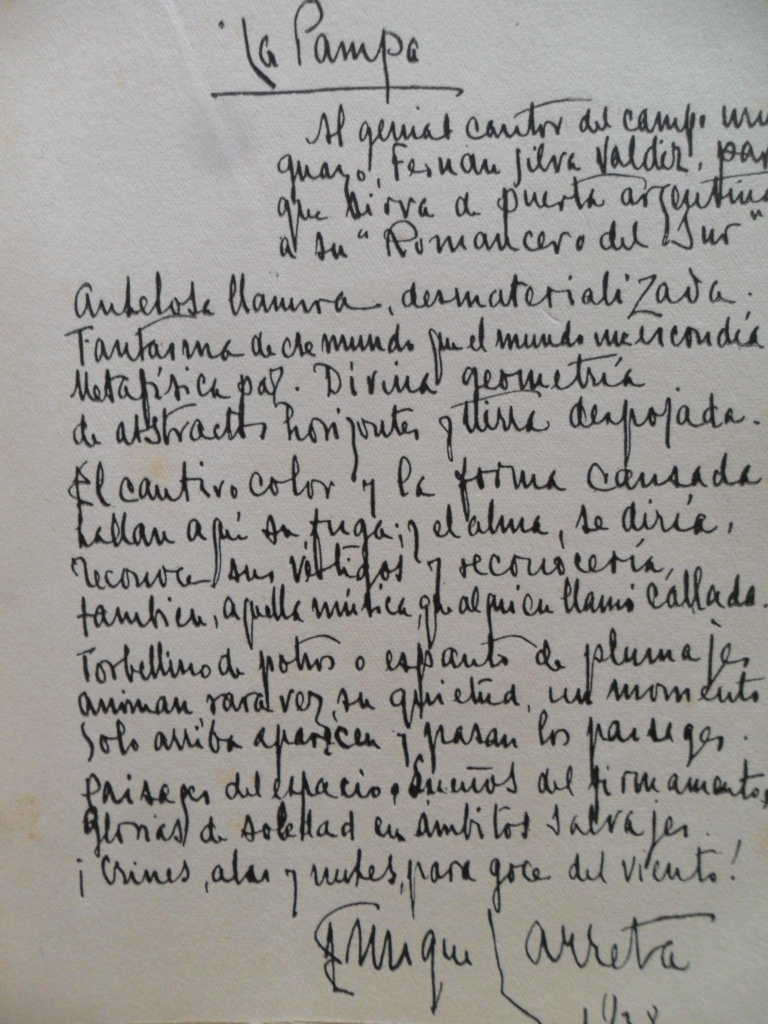 La Pampa
Al genial cantor del campo uru
guayo, Fernan Silva Valdez, par
que sirva de puerta argentina
a su "Romancero del Sur"
Anhelosa llanura, desmaterializada.
Fantasma de ese mundo que el mundo me escondía
Metafísica paz. Divina geometría
de abstractos horizontes y tierra despojada.
El cautivo color y la forma cansada
hallan aquí su fuga; y el alma, se diría,
reconoce sus vestigos y reconocería,
tambien, aquella música, que alguien llamó callada.
Torbellino de potros o espanto de plumajes
animan rara vez su quietud, un momento
Solo arriba aparecen y pasan los paisages.
Paisages del espacio, Sueños del firmamento,
Glorias de soledad en ámbitos salvajes.
¡Crines, alas y nubes, para goce del viento!
Enrique Larreta